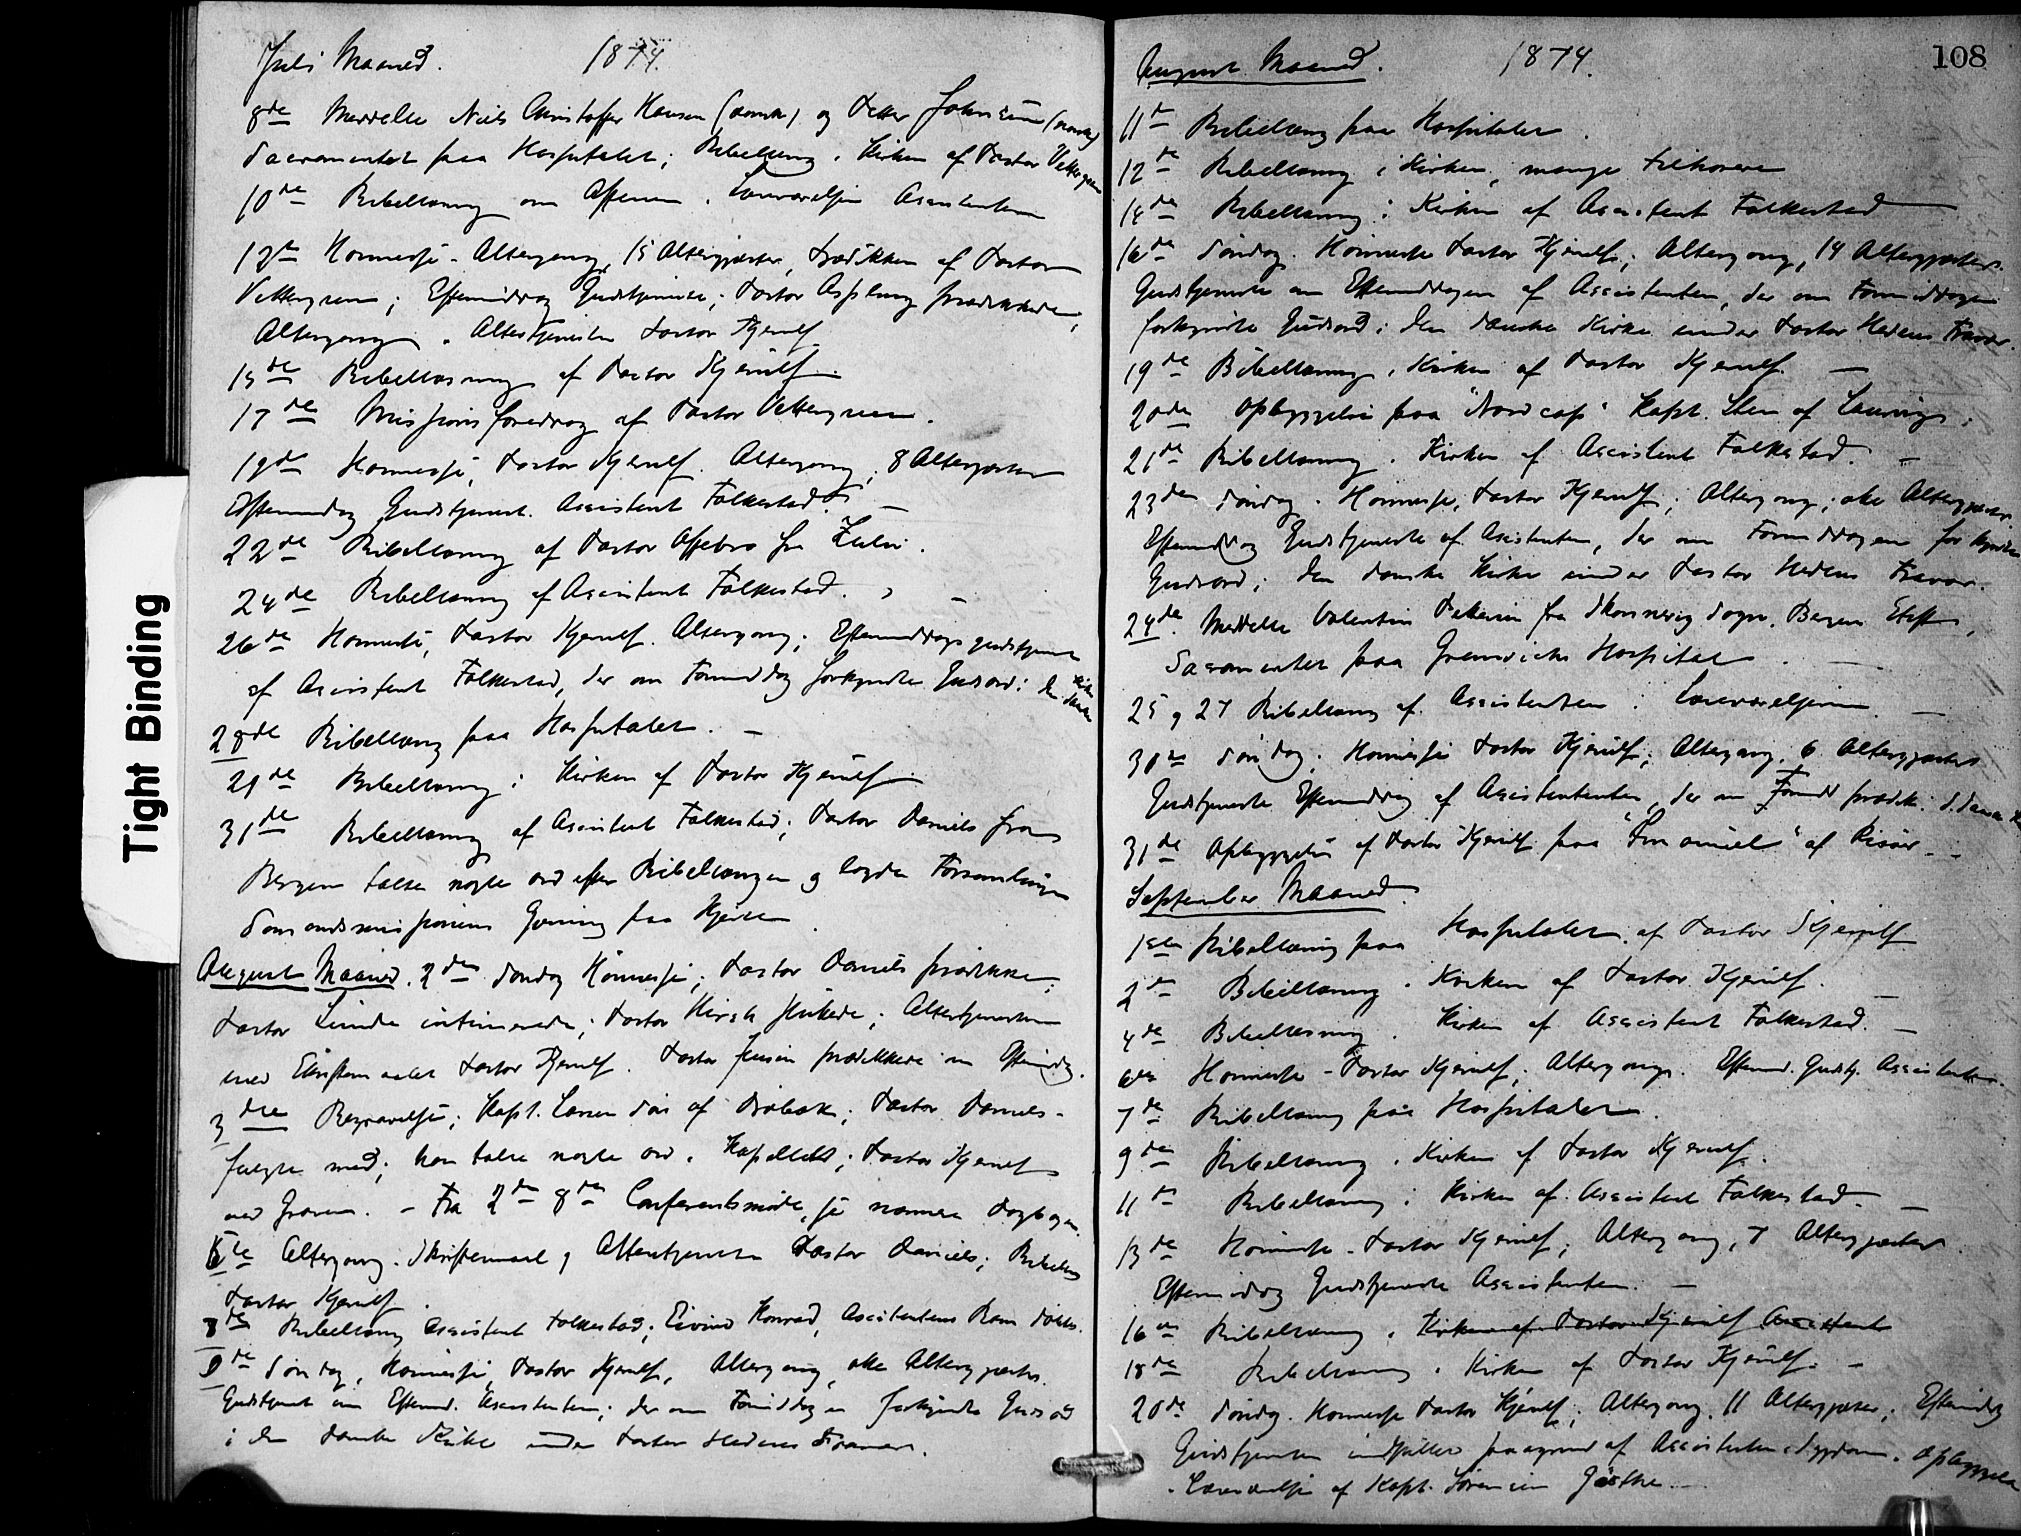 Juli Maaned. 1874.
8de Meddelte Niels Christoffer Hansen (dansk) og Peder Johnsen (norsk)
Sacramentet paa Hospitalet; Bibellæsning i Kirken af Pastor Vettergreen
10de Bibellæsning om Aftenen i Læseværelset Assistenten
12te Høimesse - Altergang, 15 Altergjæster, Prædiken af Pastor
Vettergreen; Eftermiddag Gudstjeneste; Pastor Aspling prædikede,
Altergang. Altertjenesten Pastor Kjerulf
15de Bibellæsning af Pastor Kjerulf.
17de Missionsforedrag af Pastor Vettergreen.
19de Høimesse, Pastor Kjerulf. Altergang, 8 Altergjæster
Eftermiddag Gudstjenest. Assistent Falkestad. –
22de Bibellæsning af Pastor Aftebro fra Zulu.
24de Bibellæsning af Assistent Falkestad. –
26de Høimesse, Pastor Kjerulf. Altergang; Eftermiddags gudstjenest
af Assistent Falkestad, der om Formiddag forkyndte Gudsord i den danske Kirke
28de Bibellæsng paa Hospitalet. –
29de Bibellæsning i Kirken af Pastor Kjerulf
31de Bibellæsning af Assistent Falkestad; Pastor Daniels fra
Bergen talte nogle ord efter Bibellæsngen og lagde Forsamlingen
Sømandsmissionens Gjerning paa Hjerte.
August Maaned. 2den Søndag Høimesse; Pastor Daniels prædikede;
Pastor Lunde intimerede; Pastor Hirsh; Altertjenesten
med Skriftemaalet Pastor Kjerulf. Pastor Jensen prædikede om Eftermidg.
3die Begravelse; Kapt. Larsen af Drøbak; Pastor Daniels
fulgte med; han talte nogle ord i Kapellet; Pastor Kjerulf
ved Graven. – Fra 2den 8de Conferentsmøde, se nærmere dagbogen
6te Altergang. Skriftemaal og Altertjenesten Pastor Daniels; Bibellæsng
Pastor Kjerulf.
Bibellæsng Assistent Falkestad; Eivind Konrad, Assistentens Barn døbt.
9de Søndag, Høimesse Pastor Kjerulf, Altergang, otte Altergjæster.
Gudstjenest om Efterm. Assistenten; der om Formiddagen forkyndte Gudsord
i den danske Kirke under Pastor Hedens Fravær.
August Maaned. 1874. 108
11te Bibellæsng paa Hospitalet.
12te Bibellæsning i Kirken, mange tilhørere
14de Bibellæsning i Kirken af Assistent Falkestad
16de Søndag. Høimesse Pastor Kjerulf; Altergang, 14 Altergjæster.
Gudstjeneste om Eftermiddagen af Assistenten, der om Formiddagen
forkyndte Gudsord i den danske Kirke under Pastor Hedens Fravær.
19de Bibellæsning i Kirken af Pastor Kjerulf –
20de Opbyggelse paa "Nordcap" Kapt. af Laurvig.
21de Bibellæsning i Kirken af Assistent Falkestad. –
23de Søndag. Høimesse, Pastor Kjerulf; Altergang; otte Altergjæster.
Eftermiddag Gudstjeneste af Assistenten, der om Formiddagen forkyndte
Gudsord i den danske Kirke under Pastor Hedens Fravær.
24de. Meddelte Valentin Pedersen fra Skonevig Sogn, Bergens Stift,
Sacramentet paa Greenwichs Hospital. –
25 og 27 Bibellæsng af Assistenten i Læseværelserne. –
30te Søndag; Høimesse Pastor Kjerulf; Altergang, 6 Altergjæster
Gudstjeneste Eftermiddag af Assistenten, der om Formid prædik. i d. danske
31de Opbyggelse af Pastor Kjerulf paa "Imanuel" af Risør. –
September Maaned.
1ste Bibellæsning paa Hospitalet af Pastor Kjerulf
2den Bibellæsning i Kirken af Pastor Kjerulf. –
4de Bibellæsning i Kirken af Assistent Falkestad. –
6te Høimesse - Pastor Kjerulf; Altergang. Efterm. Gudstj. Assistenten.
7de Bibellæsng paa Hospitalet.
9de Bibellæsning i Kirken af Pastor Kjerulf.
11te Bibellæsning i Kirken af Assistent Falkestad. –
13de Høimesse - Pastor Kjerulf; Altergang, 7 Altergjæster.
Eftermiddag Gudstjeneste Assistenten. –
16de Bibellæsning i Kirken af Pastor Kjerulf Assistent
18de Bibellæsning i Kirken af Pastor Kjerulf. –
20de Søndag. Høimesse Pastor Kjerulf; Altergang. 11 Altergjæster; Eftermiddag
Gudstjenesten indstillet paagrund af Assistentens Sygdom. Opbyggelse
i Læseværelset af Kapt. Sørensen